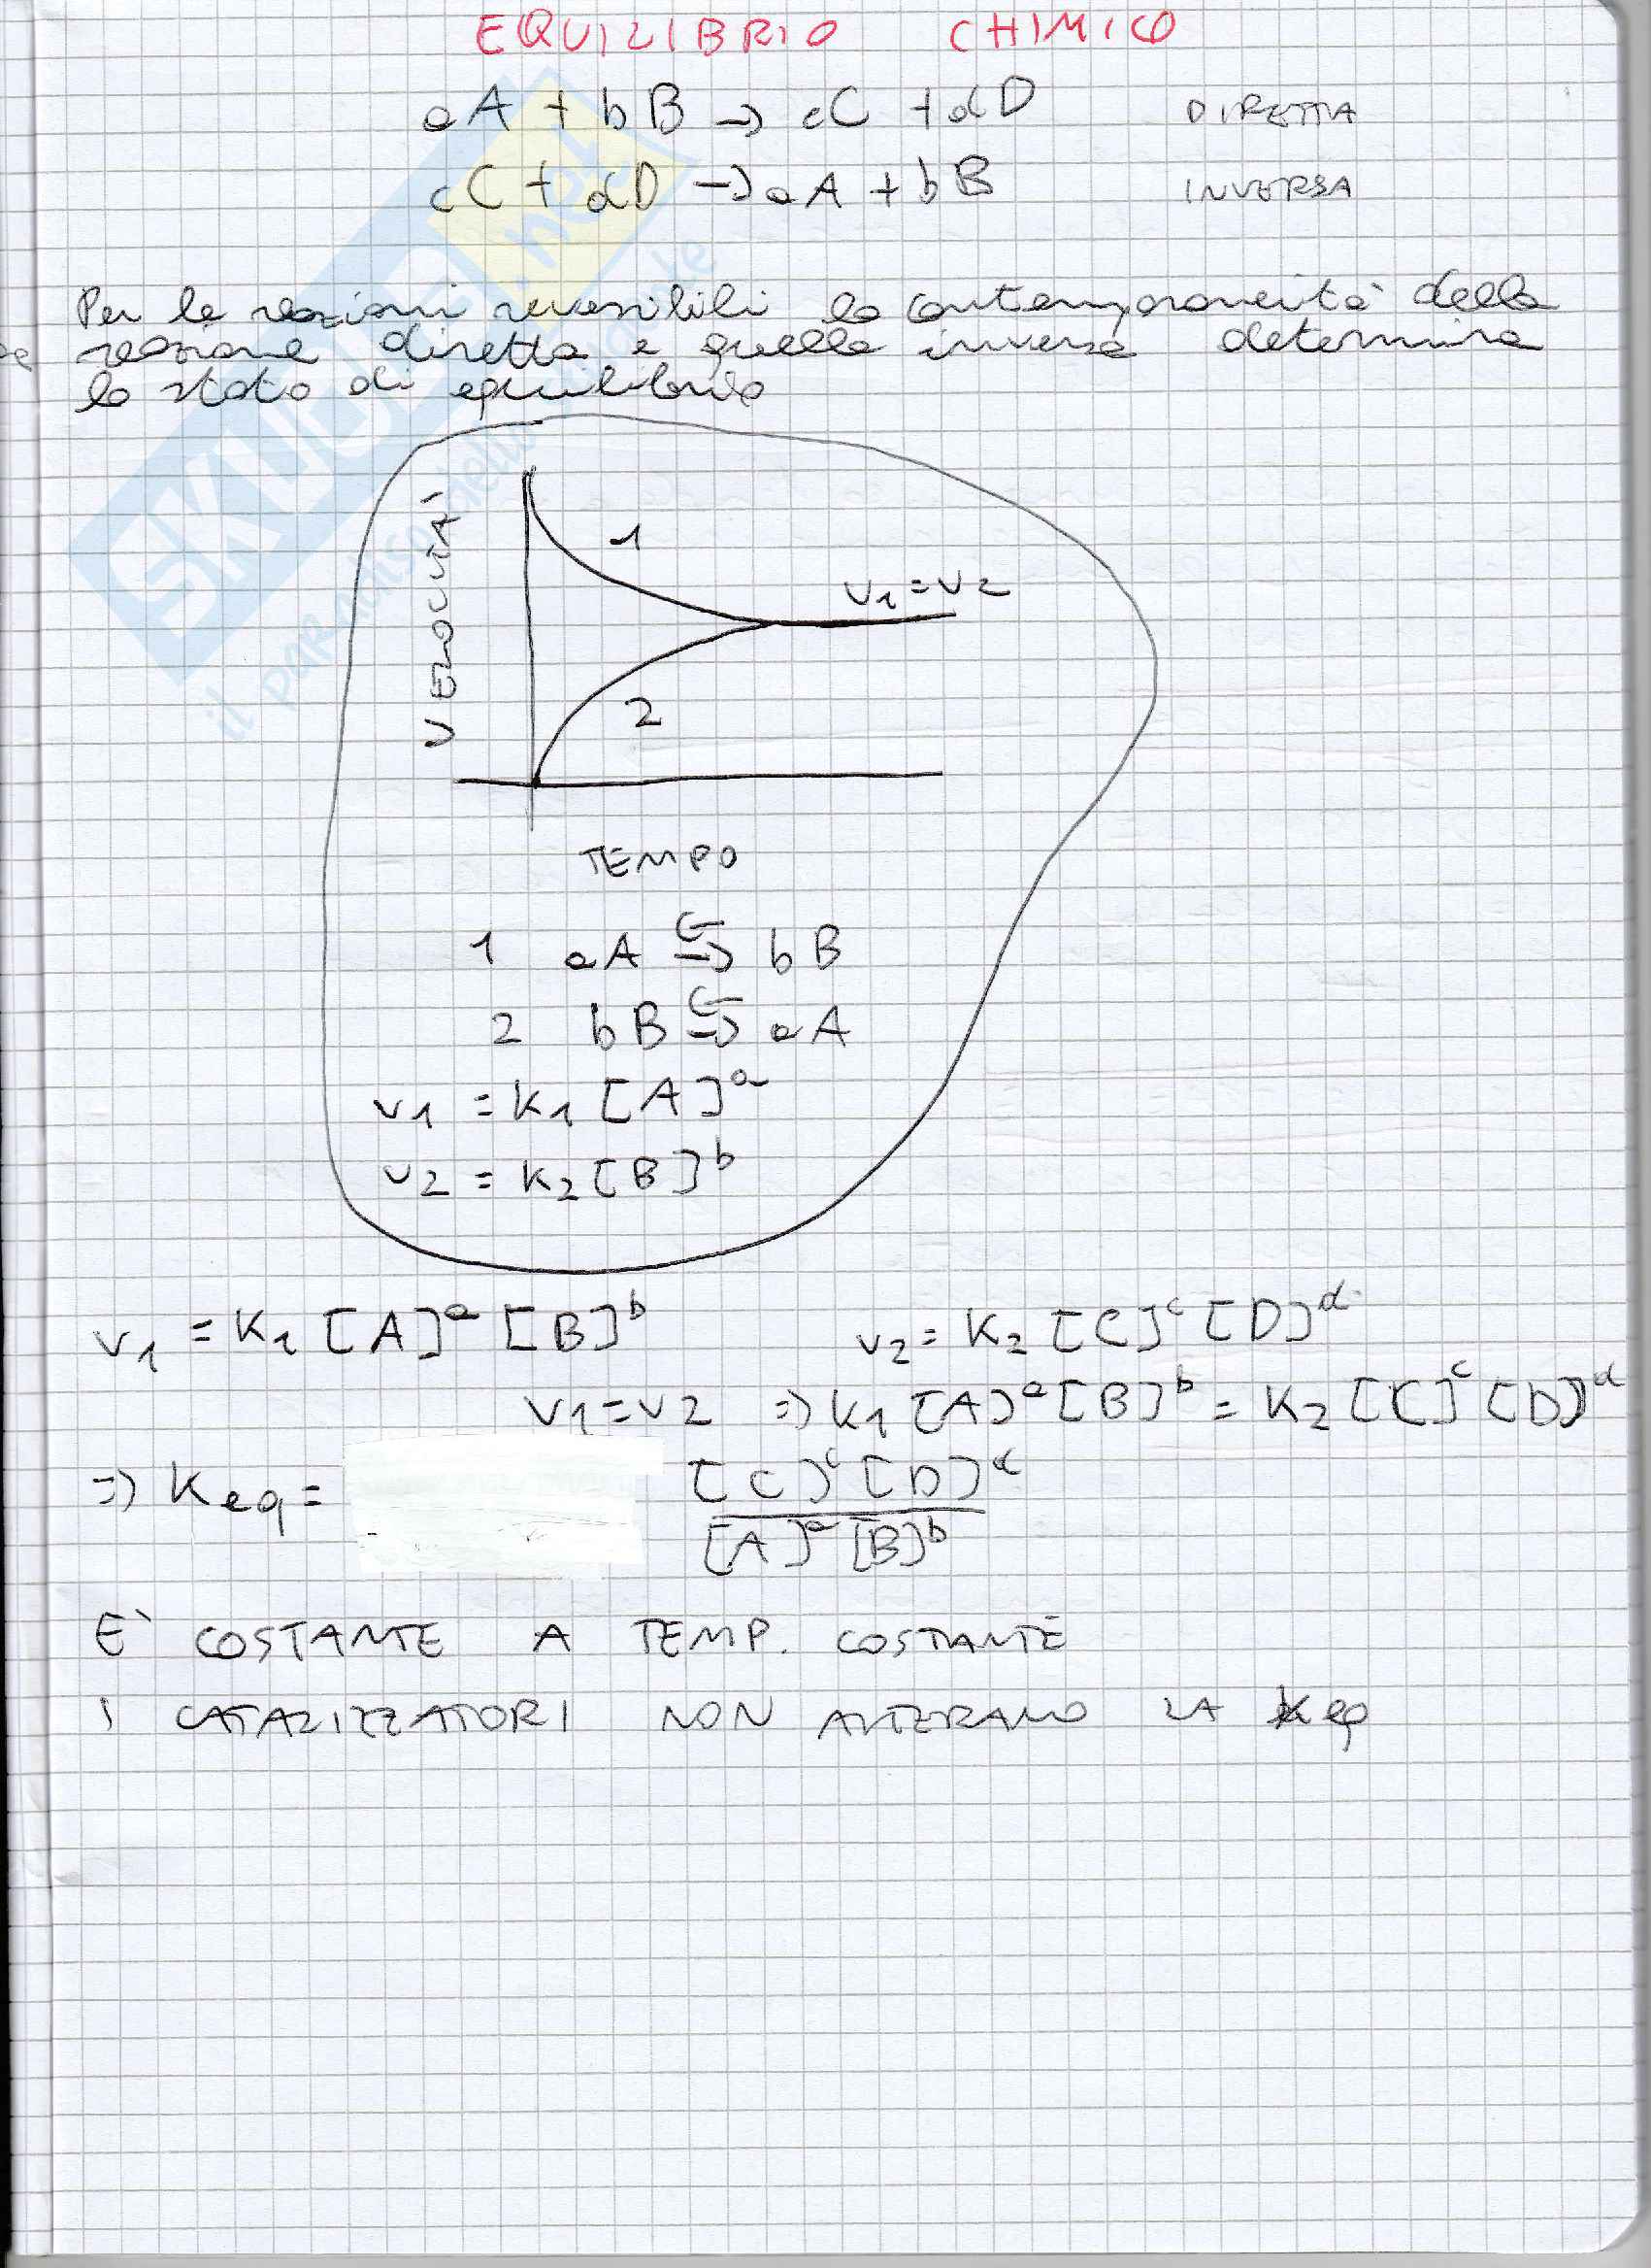 EQUILIBRIO CHIMICO
aA + bB → cC + dD DIRETTA
cC + dD → aA + bB INVERSA
Per le reazioni reversibili la contemporaneità della
reazione diretta e quella inversa determina
lo stato di equilibrio
SKUOLA.net
il paradiso dello studente
VELOCITÀ
1
V1 = V2
2
TEMPO
1 aA ⇆ bB
2 bB ⇆ aA
v1 = K1 [A]^a
v2 = K2 [B]^b
v1 = K1 [A]^a [B]^b v2 = K2 [C]^c [D]^d
v1 = v2 ⇒ K1 [A]^a [B]^b = K2 [C]^c [D]^d
⇒ Keq = [C]^c [D]^d
[A]^a [B]^b
E` COSTANTE A TEMP. COSTANTE
I CATALIZZATORI NON ALTERANO LA Keq